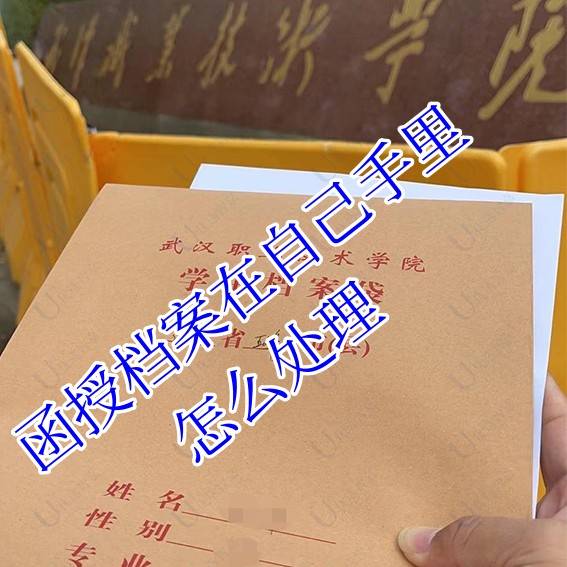 职业技术学院
武汉职 术学院
学 档案袋
省
姓名
性别
专业
函授档案在自己手里
怎么处理